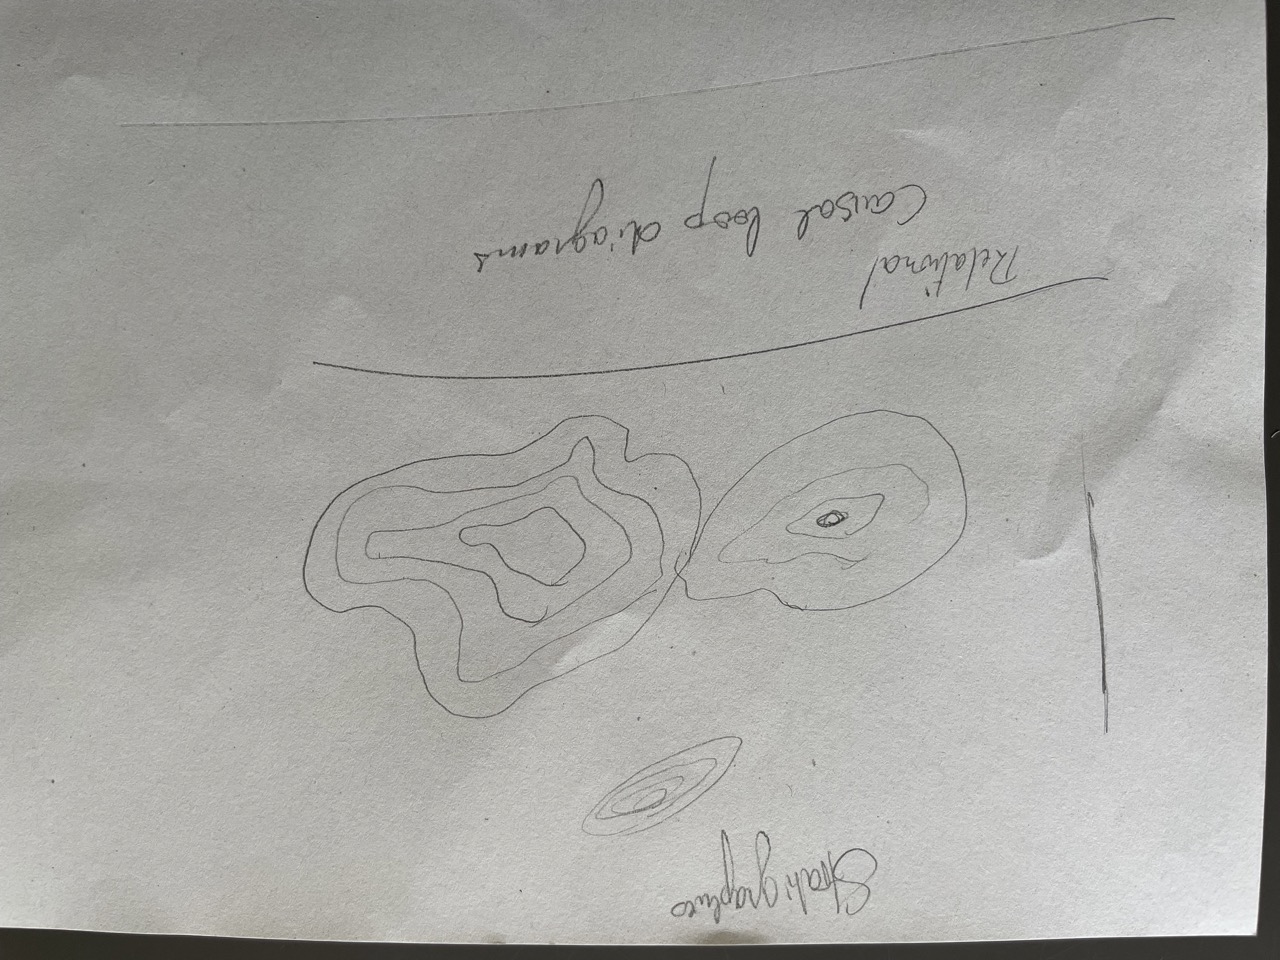 Stratigraphies
Relational
Causal loop diagrams